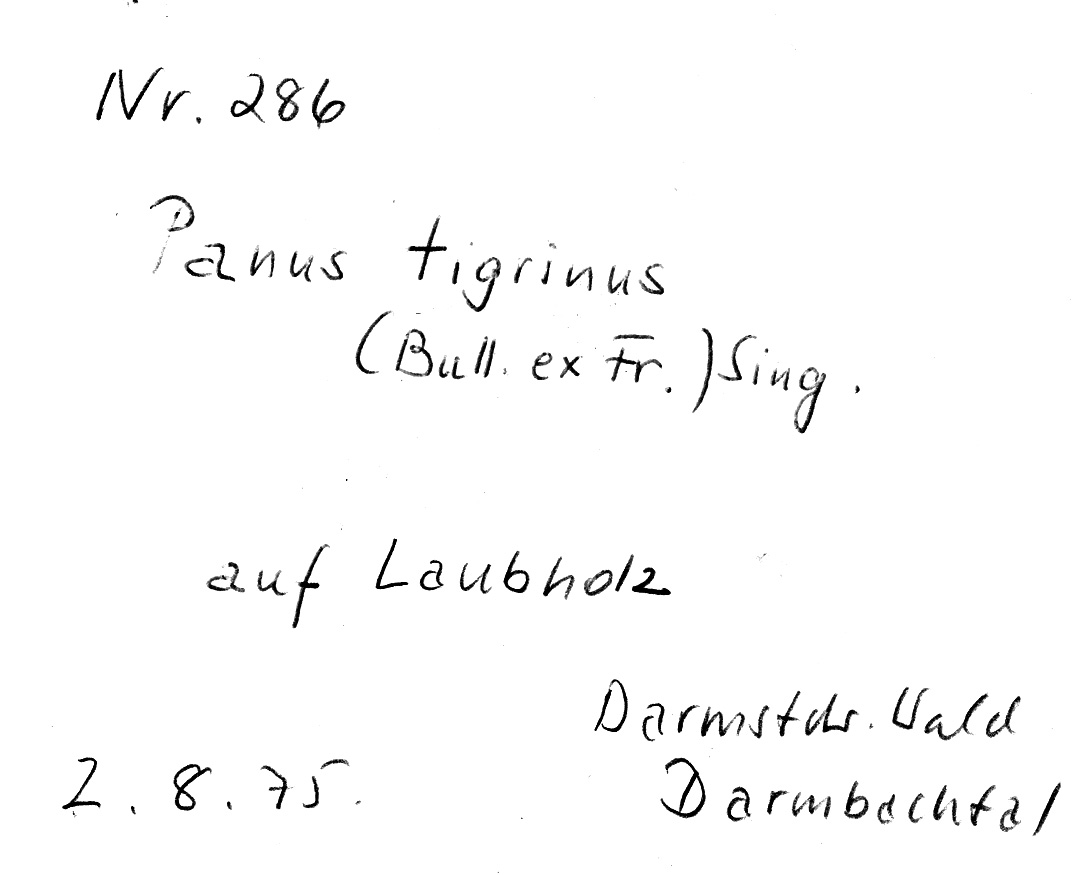 Nr. 286
Panus tigrinus
(Bull. ex Fr.) Sing.
auf Laubholz
Darmstdr. Wald
2. 8. 75. Darmbachtal